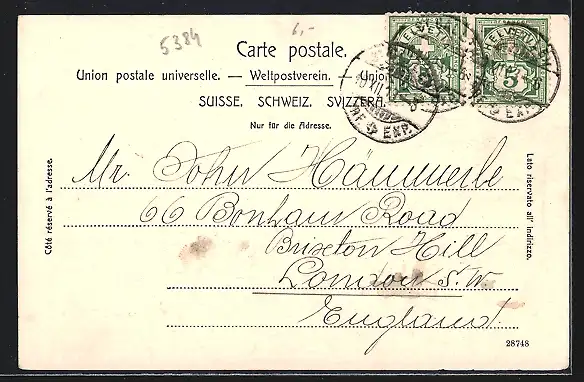 5384
6,-
Carte postale.
Union postale universelle. — Weltpostverein. — Union
SUISSE. SCHWEIZ. SVIZZERA.
Nur für die Adresse.
HELVETIA
5
HELVETIA
5
EXP.
EXP.
Côté réservé à l'adresse.
Lato riservato all' indirizzo.
Mr. John Hämmerle
66 Bonham Road
Brixton Hill
London S. W.
England
28748